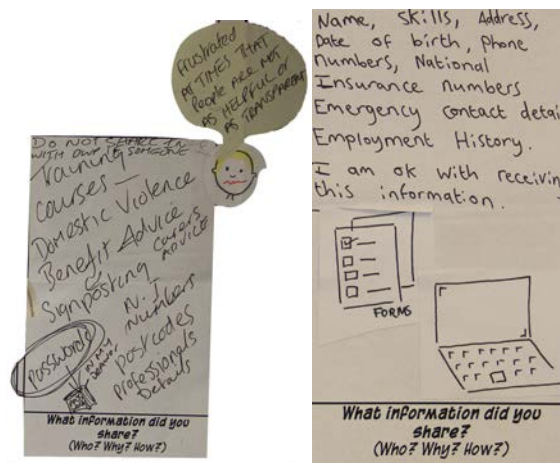 Frustrated
AT TIMES THAT
People ARE NOT
AS HELPFUL OR
AS TRANSPARENT
DO NOT SHARE IN
WITH SOMEONE
Training
courses –
Domestic Violence
Benefit Advice
careers
ADVICE
Signposting
N.I
Numbers
Passwords
IN MY
Postcodes
professionals
Details
What information did you
share?
(Who? Why? How?)
Name, Skills, Address,
Date of birth, Phone
numbers, National
Insurance numbers
Emergency contact detai
Employment History.
I am ok with receivin
this information.
FORMS
What information did you
share?
(Who? Why? How?)